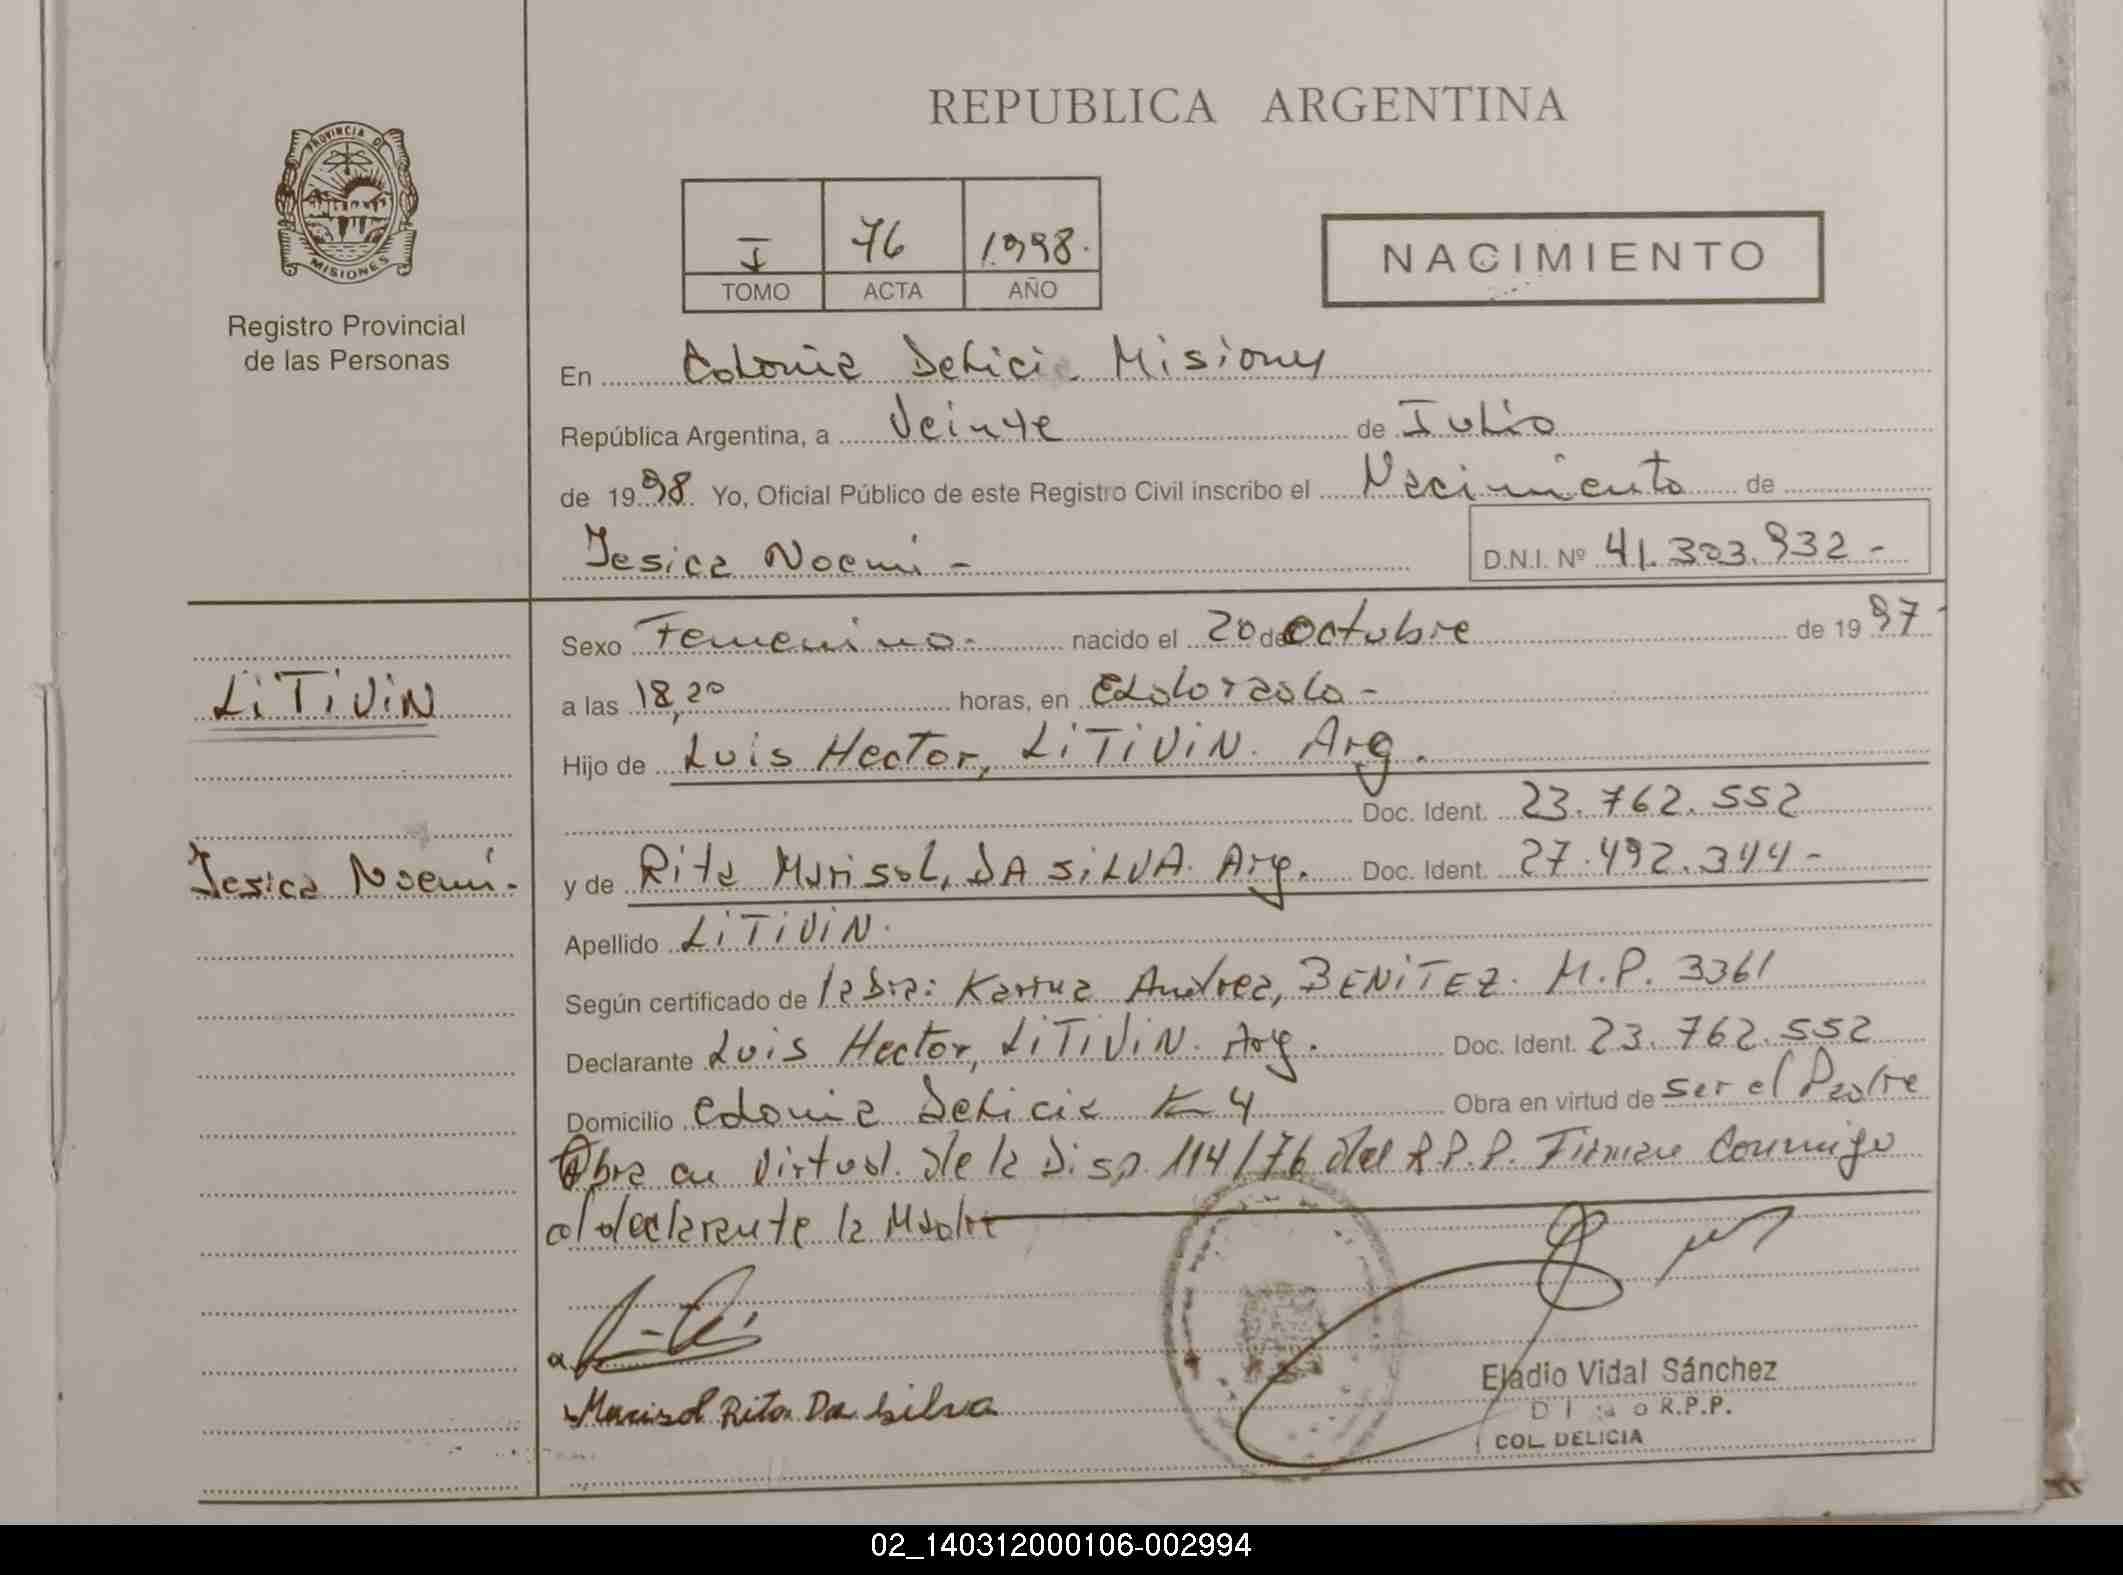 REPUBLICA ARGENTINA
PROVINCIA DE
MISIONES
Registro Provincial
de las Personas
I 76 1998.
TOMO ACTA AÑO
NACIMIENTO
En Colonia Delicia Misiones
República Argentina, a Veinte de Julio
de 1998. Yo, Oficial Público de este Registro Civil inscribo el Nacimiento de
Jesica Noemi - D.N.I. Nº 41.303.932 -
Sexo Femenino. nacido el 20 de Octubre de 1997 -
LiTiViN
a las 18,20 horas, en Eldorado -
Hijo de Luis Hector, LiTiViN. Arg.
Doc. Ident. 23.762.552
Jesica Noemi -
y de Rita Marisol, DA SiLVA. Arg. Doc. Ident. 27.492.344 -
Apellido LiTiViN.
Según certificado de la Dra: Karina Andrea, BENiTEZ. M.P. 3361
Declarante Luis Hector, LiTiViN. Arg. Doc. Ident. 23.762.552
Domicilio Colonia Delicia K 4 Obra en virtud de ser el Padre
Obra en virtud. de la Disp. 114/76 del R.P.P. Firman Conmigo
el declarante la Madre
Marisol Rita Da Silva
Eladio Vidal Sánchez
R.P.P.
COL. DELICIA
02_140312000106-002994